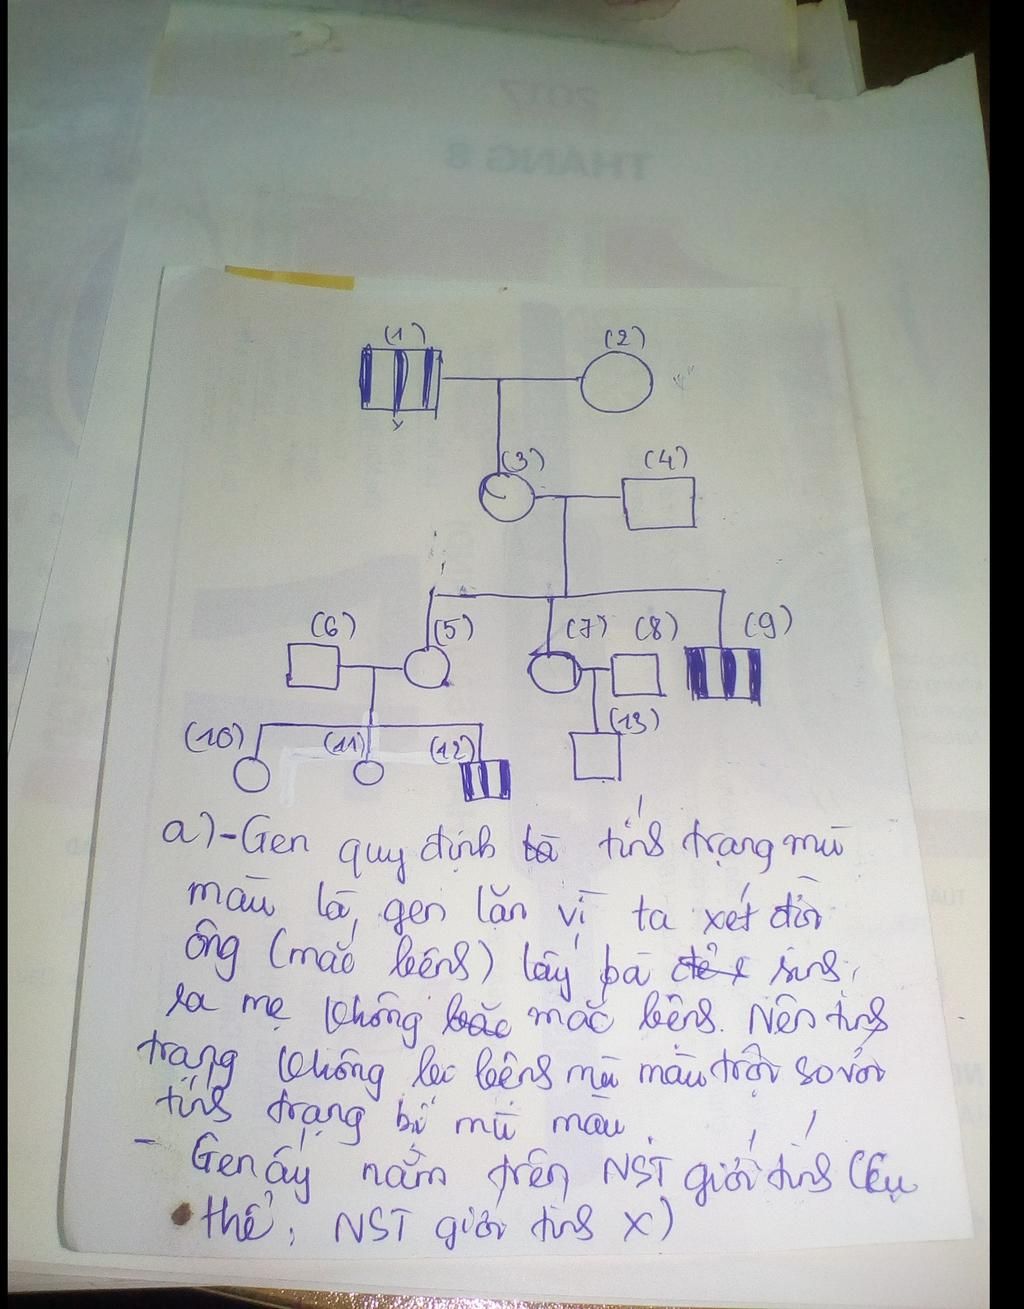 2017
THÁNG 8
(1) (2)
(3) (4)
(6) (5) (7) (8) (9)
(10) (11) (12) (13)
a) - Gen quy định tính trạng mù
màu là gen lặn vì ta xét đời
ông (mắc bệnh) lấy bà sinh
ra mẹ không mắc bệnh. Nên tính
trạng không bị bệnh mù màu trội so với
tính trạng bị mù màu.
- Gen ấy nằm trên NST giới tính (cụ
thể: NST giới tính X)